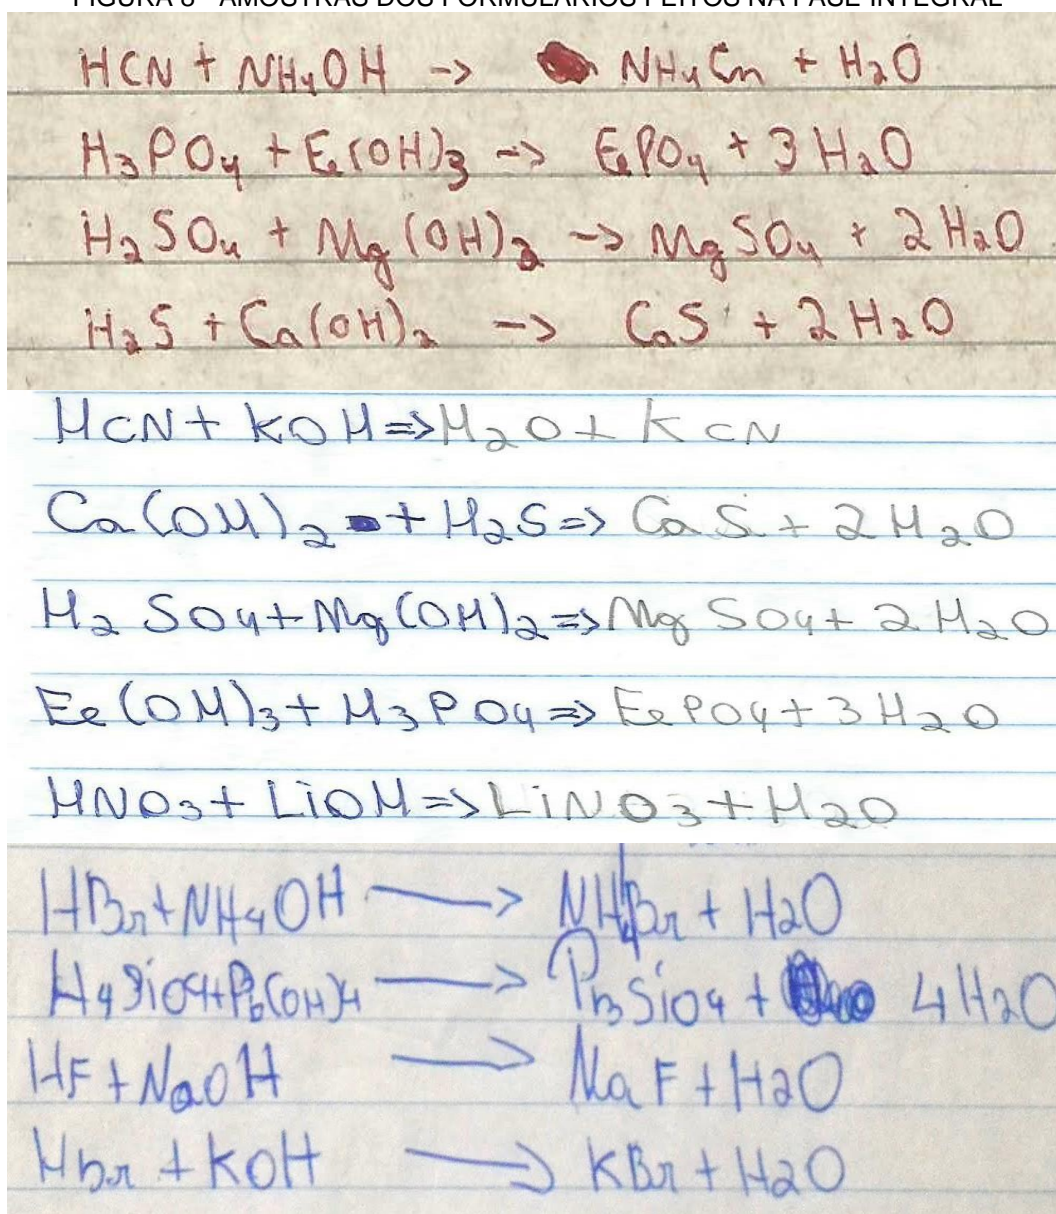 FIGURA 6 - AMOSTRAS DOS FORMULÁRIOS FEITOS NA FASE INTEGRAL
HCN + NH4OH -> NH4Cn + H2O
H3PO4 + Ee(OH)3 -> EePO4 + 3 H2O
H2SO4 + Mg(OH)2 -> MgSO4 + 2 H2O
H2S + Ca(OH)2 -> CaS + 2 H2O
HCN + KOH => H2O + KCN
Ca(OH)2 + H2S => CaS + 2H2O
H2SO4 + Mg(OH)2 => MgSO4 + 2H2O
Ee(OH)3 + H3PO4 => EePO4 + 3H2O
HNO3 + LiOH => LiNO3 + H2O
HBr + NH4OH → NH4Br + H2O
H4SiO4 + Pb(OH)4 → PbSiO4 + 4H2O
HF + NaOH → NaF + H2O
HBr + KOH → KBr + H2O